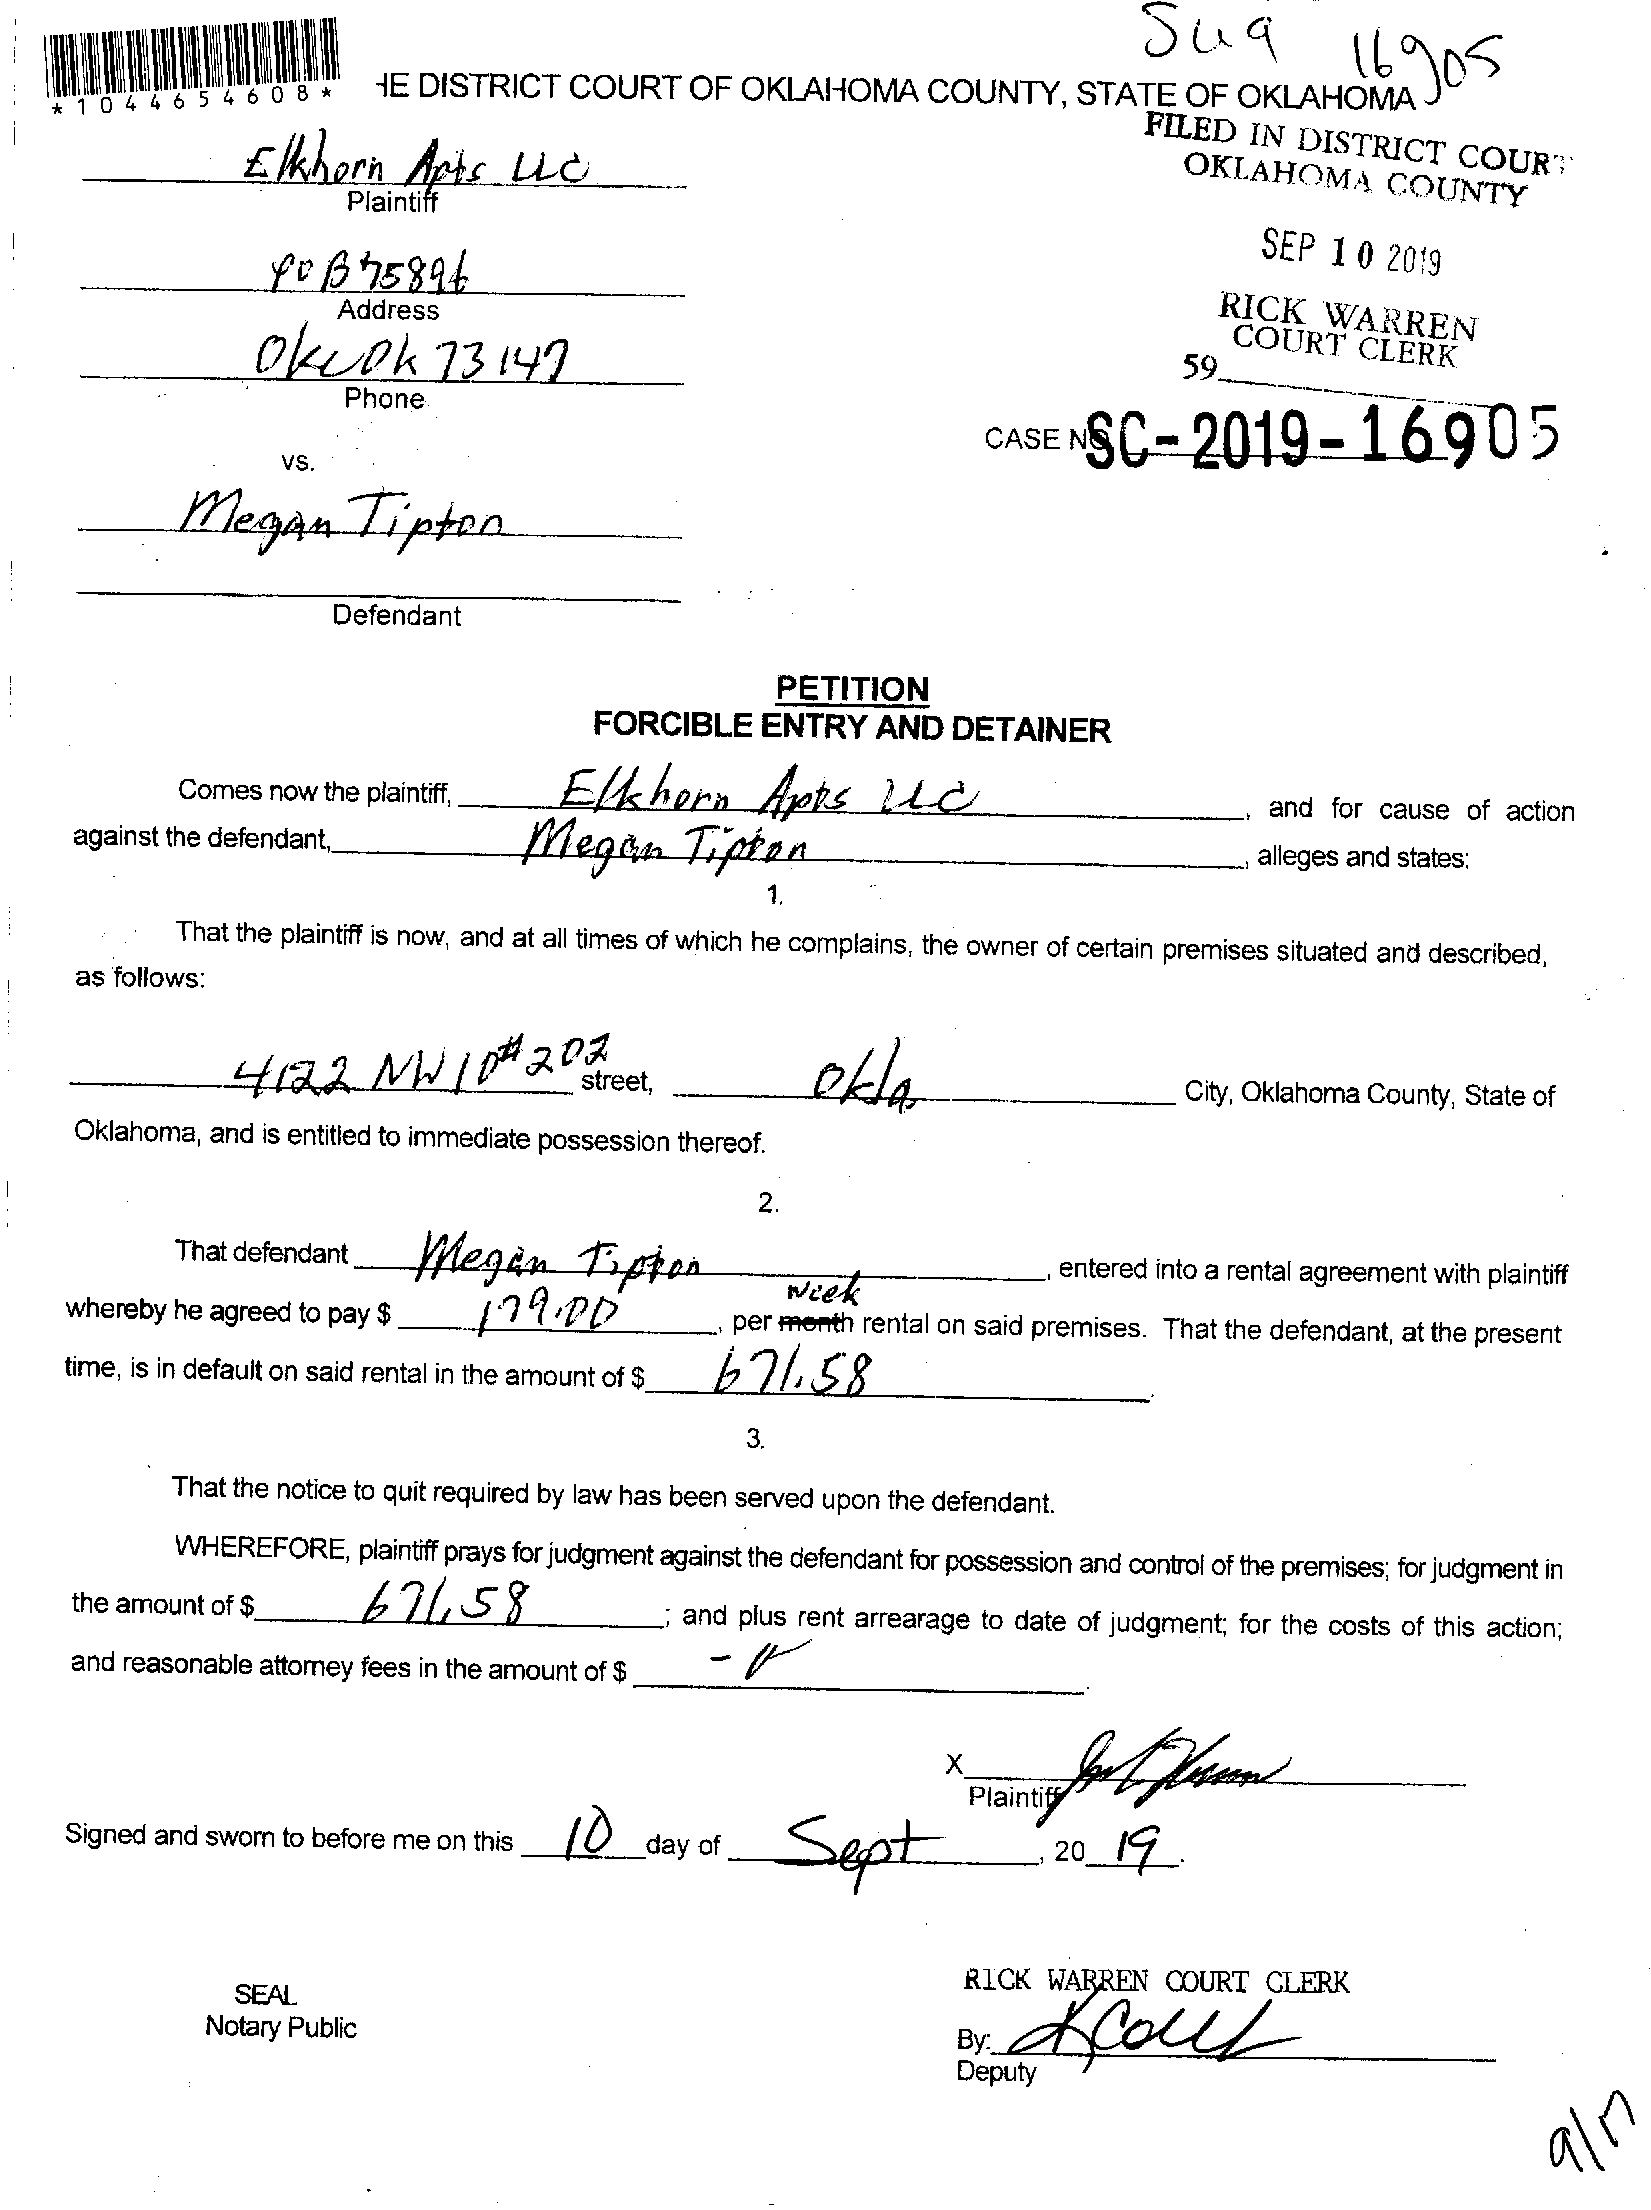 16905
*1044654608*
HE DISTRICT COURT OF OKLAHOMA COUNTY, STATE OF OKLAHOMA
FILED IN DISTRICT COURT
OKLAHOMA COUNTY
Elkhorn Apts LLC
Plaintiff
SEP 10 2019
POB 75896
Address
RICK WARREN
COURT CLERK
OKC Ok 73147
59
Phone
CASE NO SC-2019-16905
vs.
Megan Tipton
Defendant
PETITION
FORCIBLE ENTRY AND DETAINER
Comes now the plaintiff, Elkhorn Apts LLC, and for cause of action
against the defendant, Megan Tipton, alleges and states:
1.
That the plaintiff is now, and at all times of which he complains, the owner of certain premises situated and described,
as follows:
4122 NW 10 #202 street, Okla City, Oklahoma County, State of
Oklahoma, and is entitled to immediate possession thereof.
2.
That defendant Megan Tipton, entered into a rental agreement with plaintiff
week
whereby he agreed to pay $ 179.00, per month rental on said premises. That the defendant, at the present
time, is in default on said rental in the amount of $ 671.58.
3.
That the notice to quit required by law has been served upon the defendant.
WHEREFORE, plaintiff prays for judgment against the defendant for possession and control of the premises; for judgment in
the amount of $ 671.58; and plus rent arrearage to date of judgment; for the costs of this action;
and reasonable attorney fees in the amount of $
X
Plaintiff
Signed and sworn to before me on this 10 day of Sept, 20 19.
RICK WARREN COURT CLERK
SEAL
Notary Public
By:
Deputy
9/17